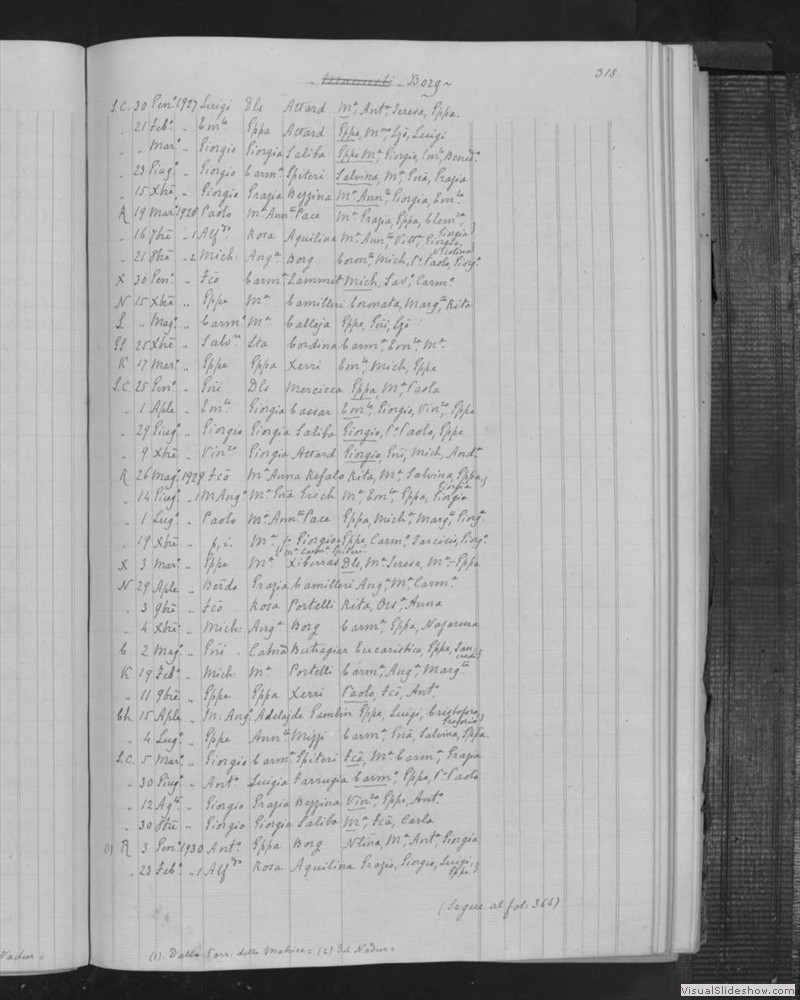 318
Borg
S.C. 30 Genº 1927 Luigi Dls Attard Mª Antª Teresa, Gppa
" 21 Febº " Emle Gppa Attard Gppe, Luigi
" " Marº " Giorgio Giorgia Saliba Gppe Mª Giorgio, Emle, Bened.º
" 23 Giugº " Giorgio Carmª Spiteri Salvina, Mª Gnã, Grazia
" 15 Xbrē " Giorgio Grazia Bezzina Mª Annta Giorgia, Emla
R 19 Marº 1928 Paolo Mª Annta Pace Mª Grazia, Gppa, Clemza
" 16 7brē " 1 Alfdo Rosa Aquilina Mª Annta Vittª Giorgia, Giorgia
" 21 8brē " 2 Mich: Angª Borg Coronta Mich, Pº Paolo, Giorgº Nicolina
X 30 Genº " Fcõ Carmª Sammut Mich, Savº, Carmº
N 15 Xbrē " Gppe Mª Camilleri Coronata, Margta Rita
L " Magº " Carmº Mª Calleja Gppe, Gnĩ, Gjõ
GS 25 Xbrē " Salvre Sta Cordina Carmª, Emla, Mª
K 17 Marº " Gppe Gppa Xerri Emle, Mich, Gppe
S.C. 25 Genº " Gnĩ Dls Mercieca Gppa, Mª Paola
" 1 Aple " Emle Giorgia Caesar Emle, Giorgio, Vinzo, Gppe
" 29 Giugº " Giorgio Giorgia Saliba Giorgio, Pº Paolo, Gppe
" 9 Xbrē " Vinzo Giorgia Attard Giorgio, Gnĩ, Mich, Andª
R 26 Magº 1929 Fcõ Mª Anna Refalo Rita, Mª Salvina, Gppa, Giorgia
" 14 Giugº " 1 M. Angº Mª Gnã Grech Mª Emla, Gppa, Giorgia
" 1 Lugº " Paolo Mª Annta Pace Gppa, Michª Margta Giorgª
" 19 Xbrē " p. i. Mª fª Giorgio Gppe, Carmº, Tarcisio, Giorgº
Mª Carmª Spiteri
X 3 Marº " Gppe Mª Xiberras Dls, Mª Teresa, Mª Gppa
N 29 Aple " Berdo Grazia Camilleri Angª Mª Carmª
" 3 9brē " Fcõ Rosa Portelli Rita, Orsª Anna
" 4 Xbrē " Mich: Angª Borg Carmª, Gppa, Nazarena
C 2 Magº " Gnĩ Buttigieg Eucaristico, Gppe,
K 19 Febº " Mich Mª Portelli Carmª, Angª, Margta
" 11 9brē " Gppe Gppa Xerri Paolo, Fcõ, Antº
Gh 15 Aple " M. Angº Adelaide Gambin Gppe, Luigi, Cristoforo, Gregorio
" 4 Lugº " Gppe Annta Mizzi Carmª Gnã, Salvina, Gppa
S.C. 5 Marº " Giorgio Carmª Spiteri Fcã, Mª Carmª, Grazia
" 30 Giugº " Antº Luigia Farrugia Carmº, Gppe, Pº Paolo
" 12 Agto " Giorgio Grazia Bezzina Vinzo, Gppe, Antº
" 30 8brē " Giorgio Giorgia Saliba Mª, Fcã, Carla
(1) R 3 Genº 1930 Antº Gppa Borg Mª Antª Giorgia
" 23 Febº " 1 Alfdo Rosa Aquilina Grazio, Giorgio, Luigi, Gppe
(Segue al fol: 366)
(1). Dalla Parr: della Matrice = (2) Del Nadur =
Nadur =
VisualSlideshow.com